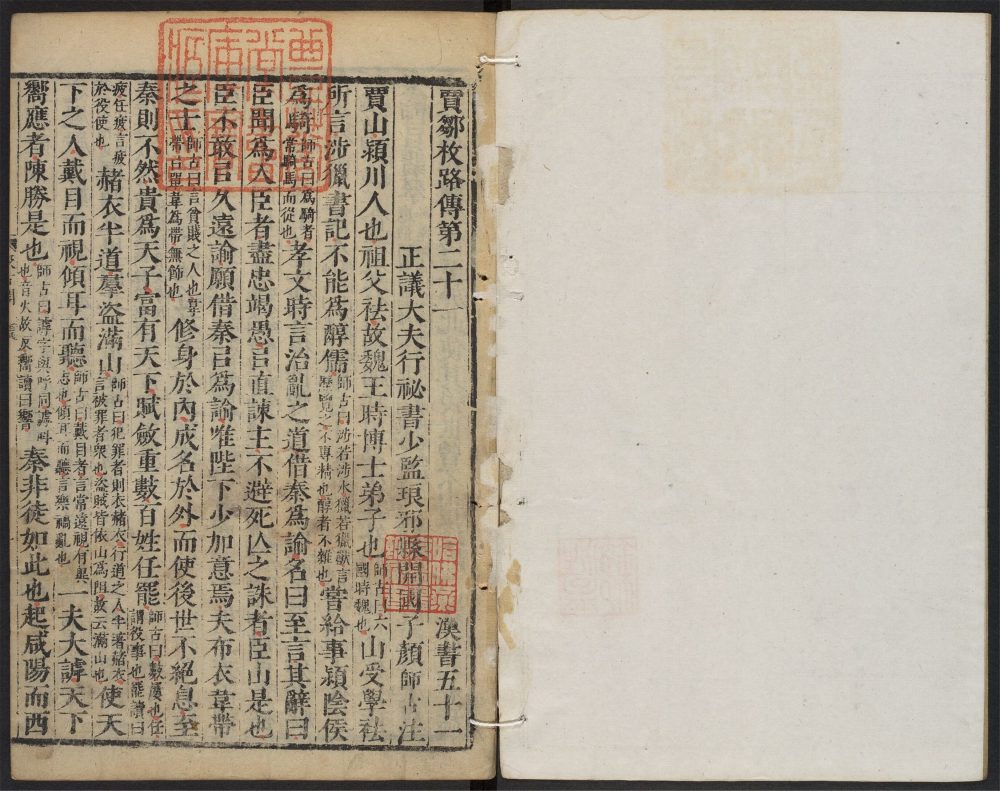 賈鄒枚路傳第二十一 漢書五十一
正議大夫行祕書少監琅邪縣開國子顏師古注
賈山潁川人也祖父祛故魏王時博士弟子也師古曰六國時魏也山受學祛
所言涉獵書記不能爲醇儒師古曰涉若涉水獵若獵獸言歷覽之不專精也醇者不雜也嘗給事潁陰侯
爲騎師古曰爲騎者常騎馬而從也孝文時言治亂之道借秦爲諭名曰至言其辭曰
臣聞爲人臣者盡忠竭愚㠯直諫主不避死亾之誅者臣山是也
臣不敢㠯久遠諭願借秦㠯爲諭唯陛下少加意焉夫布衣韋帶
之士師古曰言貧賤之人也韋帶古單韋爲帶無飾也修身於內成名於外而使後世不絕息至
秦則不然貴爲天子富有天下賦斂重數百姓任罷師古曰數屢也任謂役事也罷讀曰
疲任疲言疲於役使也赭衣半道羣盜滿山師古曰犯罪者則衣赭衣行道之人半著赭衣言被罪者衆也盜賊皆依山爲阻故云滿山也使天
下之人戴目而視傾耳而聽師古曰戴目者言常遠視有異志也傾耳而聽言樂禍亂也一夫大謼天下
嚮應者陳勝是也師古曰謼字與呼同謼叫也音火故反嚮讀曰響秦非徒如此也起咸陽而西